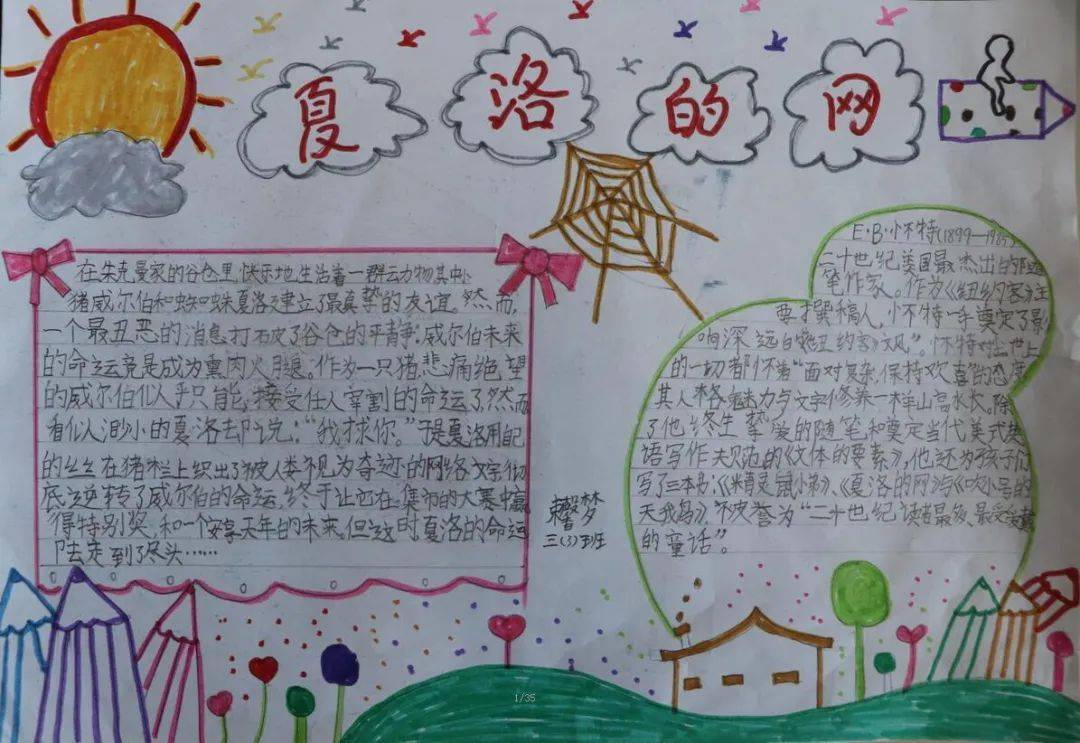 夏洛的网
在朱克曼家的谷仓里,快乐地生活着一群动物,其中小
猪威尔伯和蜘蛛夏洛建立了最真挚的友谊。然而,
一个最丑恶的消息打破了谷仓的平静:威尔伯未来
的命运竟是成为熏肉火腿。作为一只猪,悲痛绝望
的威尔伯似乎只能接受任人宰割的命运了,然而
看似渺小的夏洛却说:“我救你。”于是夏洛用自己
的丝在猪栏上织出了被人类视为奇迹的网络文字,彻
底逆转了威尔伯的命运,终于让它在集市的大赛中赢
得特别奖,和一个安享天年的未来。但这时,夏洛的命运
却走到了尽头……
梦
三(3)班
E·B·怀特(1899—1985)
二十世纪美国最杰出的随
笔作家。作为《纽约客》主
要撰稿人,怀特一手奠定了影
响深远的“纽约客文风”。怀特对世上
的一切都怀着“面对复杂,保持欢喜”的态度
其人格魅力与文字修养一样山高水长。除
了他终生挚爱的随笔和奠定当代美式英
语写作夫见范的《文体的要素》,他还为孩子们
写了三本书:《精灵鼠小弟》、《夏洛的网》与《吹小号的
天鹅》,怀被誉为“二十世纪读者最多、最受爱戴
的童话”。
1/35